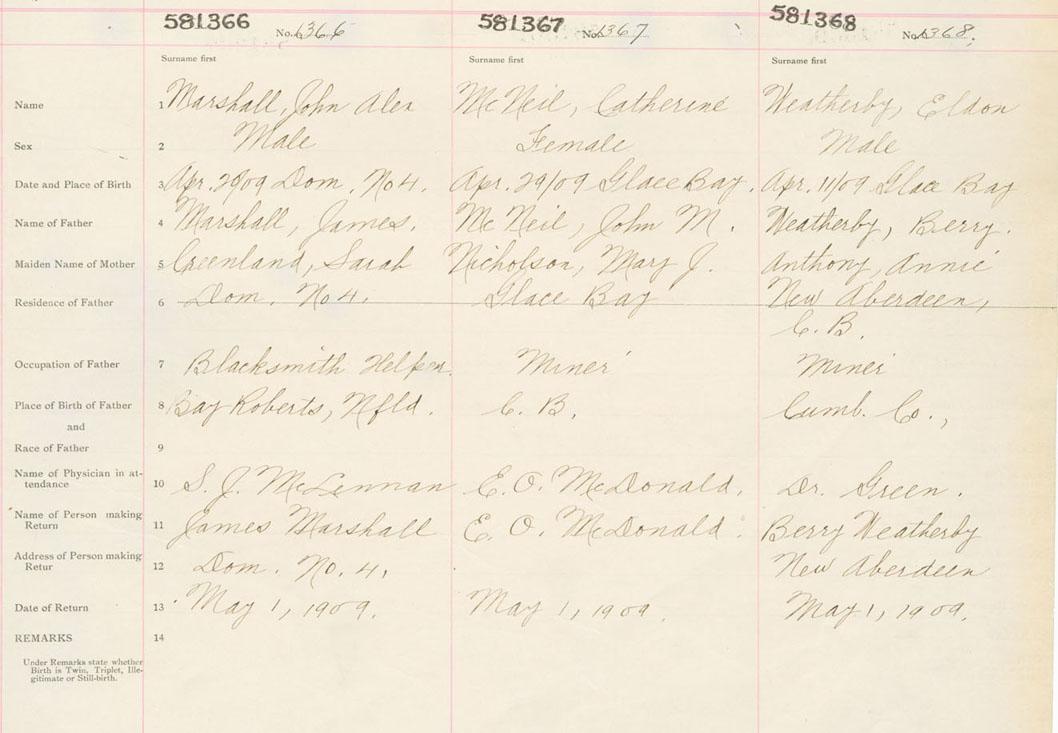 581366 No. 1366 581367 No. 1367 581368 No. 1368
Surname first Surname first Surname first
Name 1 Marshall, John Alex McNeil, Catherine Weatherby, Eldon
Sex 2 Male Female Male
Date and Place of Birth 3 Apr. 29/09 Dom. No 4. Apr. 29/09 Glace Bay. Apr. 11/09 Glace Bay
Name of Father 4 Marshall, James. McNeil, John M. Weatherby, Berry.
Maiden Name of Mother 5 Greenland, Sarah Nicholson, Mary J. Anthony, Annie
Residence of Father 6 Dom. No 4. Glace Bay New Aberdeen,
C. B.
Occupation of Father 7 Blacksmith Helper Miner Miner
Place of Birth of Father 8 Bay Roberts, Nfld. C. B. Cumb. Co.,
and
Race of Father 9
Name of Physician in at-
tendance 10 S. J. McLennan E. O. McDonald. Dr. Green.
Name of Person making
Return 11 James Marshall E. O. McDonald. Berry Weatherby
Address of Person making
Retur 12 Dom. No. 4, New Aberdeen
Date of Return 13 May 1, 1909. May 1, 1909. May 1, 1909.
REMARKS 14
Under Remarks state whether
Birth is Twin, Triplet, Ille-
gitimate or Still-birth.